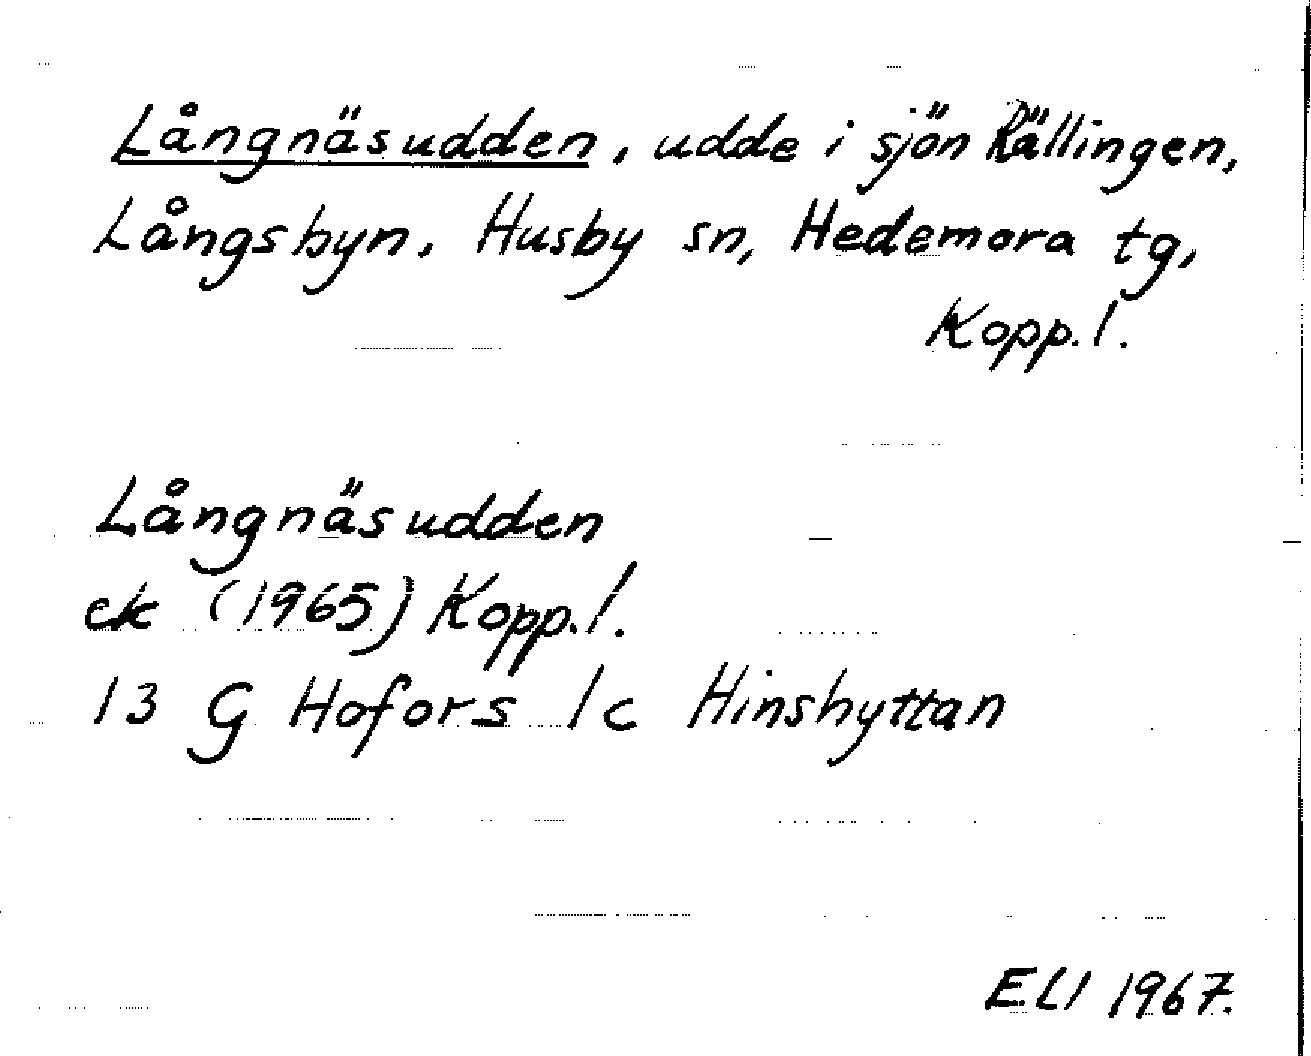 Långnäsudden, udde i sjön Rällingen,
Långshyn, Husby sn, Hedemora tg,
Kopp. l.
Långnäsudden
ek (1965) Kopp. l.
13 G Hofors 1c Hinshyttan
ELI 1967.